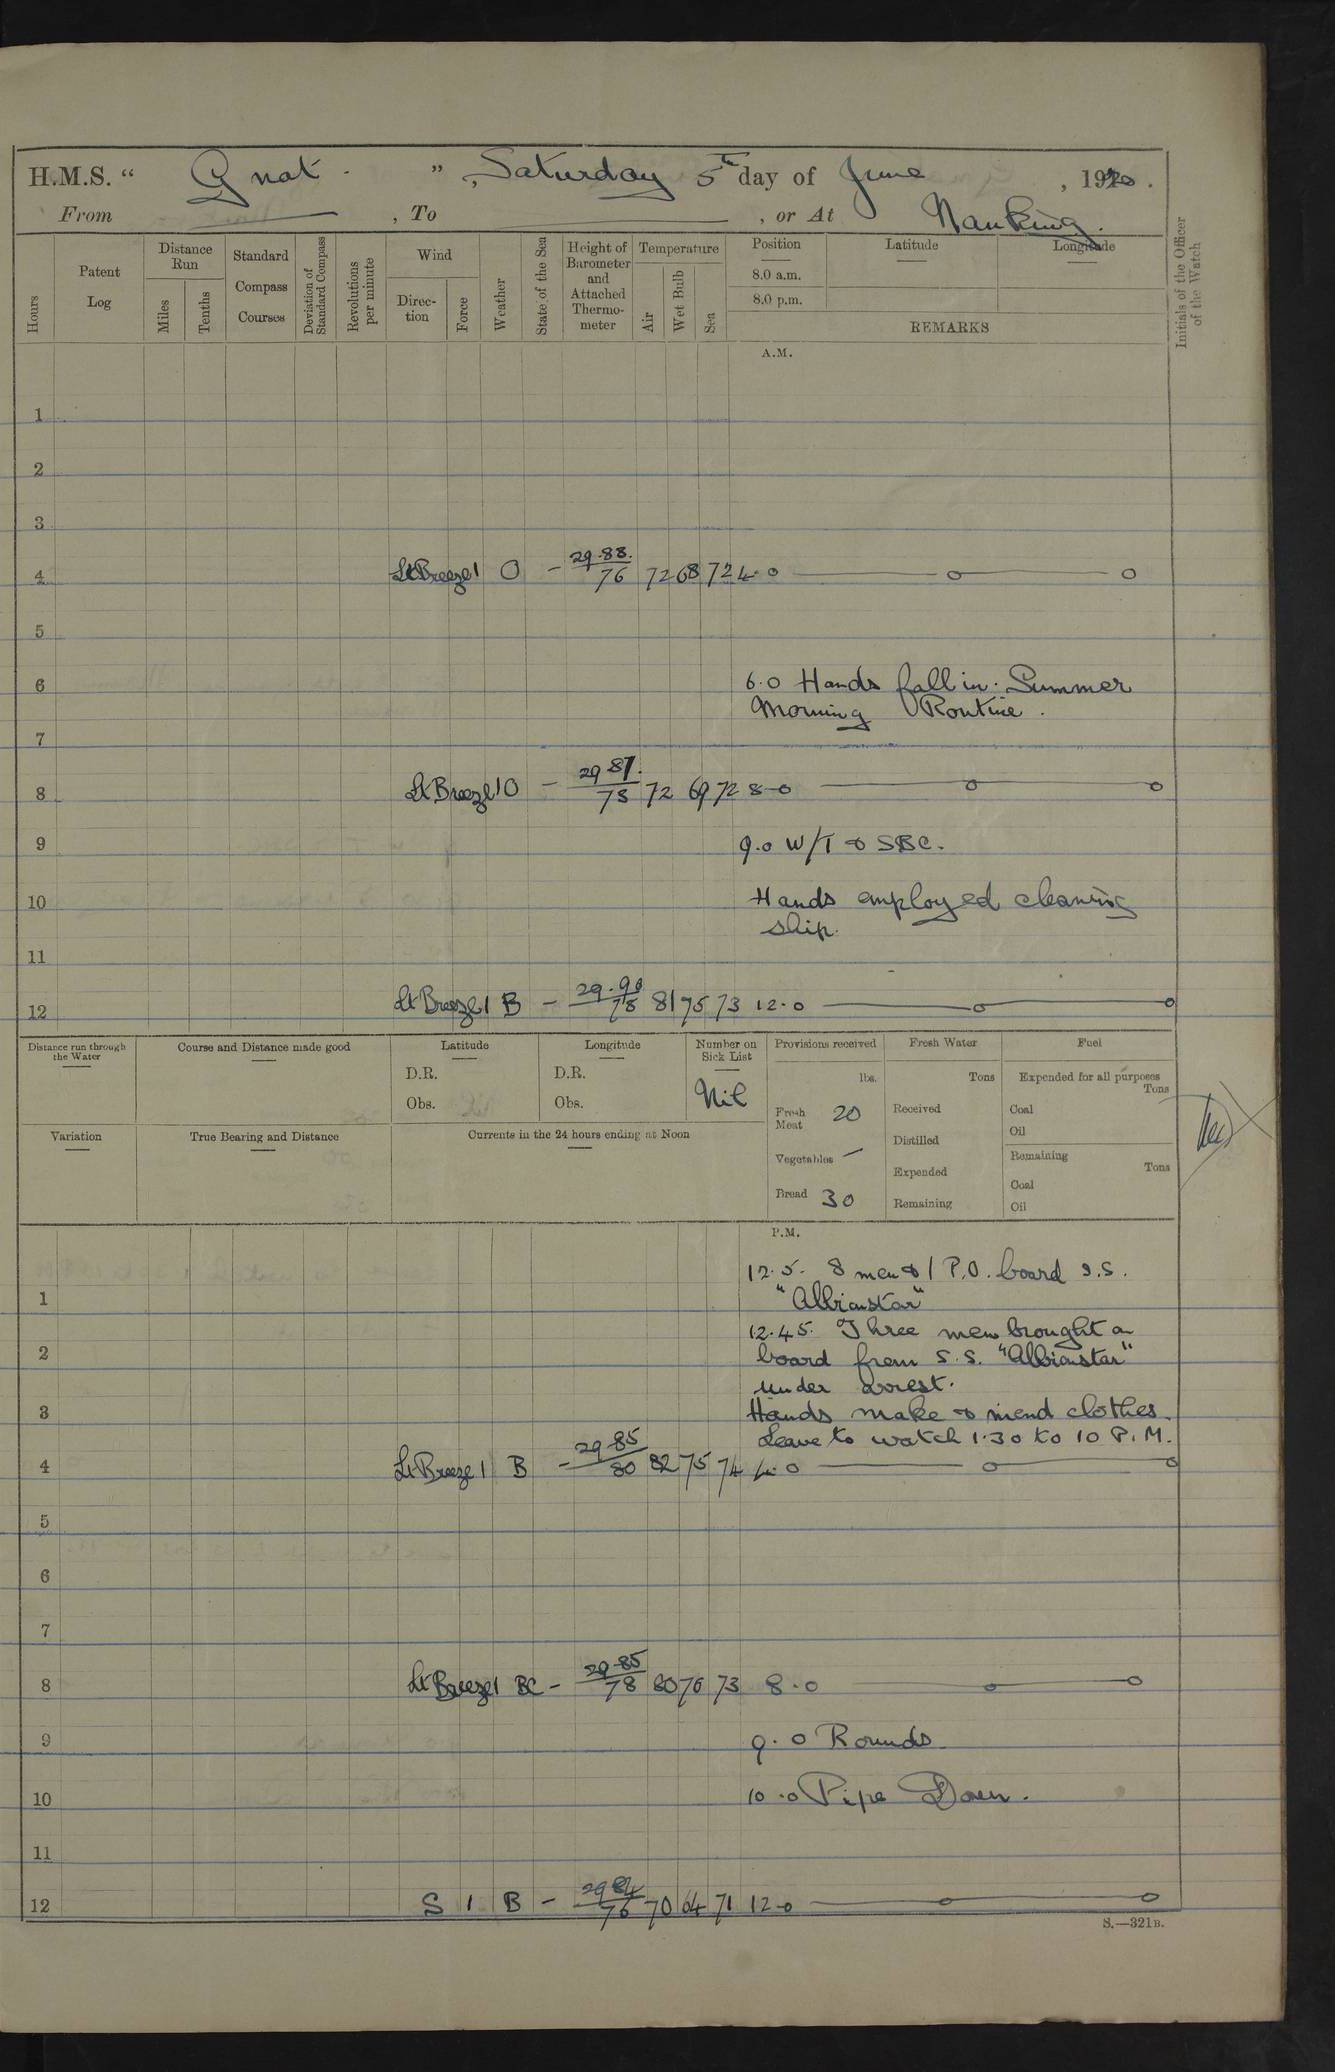 H.M.S. “ Gnat. ”, Saturday 5th day of June, 1920.
From , To , or At Nanking.
Hours
Patent Log
Distance Run
Miles
Tenths
Standard Compass Courses
Deviation of Standard Compass
Revolutions per minute
Wind
Direction
Force
Weather
State of the Sea
Height of Barometer and Attached Thermometer
Temperature
Air
Wet Bulb
Sea
Position
Latitude
Longitude
8.0 a.m.
8.0 p.m.
REMARKS
Initials of the Officer of the Watch
A.M.
1
2
3
4 Lt Breeze 1 O – 29.88. 76 72 68 72 4.0
5
6 6.0 Hands fall in. Summer
Morning Routine.
7
8 Lt Breeze 1 O – 29 87. 75 72 69 72 8.0
9 9.0 W/T & SBC.
10 Hands employed cleaning
ship.
11
12 Lt Breeze 1 B – 29.90 78 81 75 73 12.0
Distance run through the Water
Course and Distance made good
Latitude
D.R.
Obs.
Longitude
D.R.
Obs.
Number on Sick List
Nil
Provisions received
lbs.
Fresh Meat 20
Vegetables –
Bread 30
Fresh Water
Tons
Received
Distilled
Expended
Remaining
Fuel
Expended for all purposes
Tons
Coal
Oil
Remaining
Tons
Coal
Oil
Variation
True Bearing and Distance
Currents in the 24 hours ending at Noon
P.M.
12.5. 8 men & 1 P.O. board S.S.
1 "Albianstar"
12.45. Three men brought a
2 board from S.S. "Albianstar"
under arrest.
3 Hands make & mend clothes.
Leave to watch 1.30 to 10 P.M.
4 Lt Breeze 1 B – 29.85 80 82 75 74 4.0
5
6
7
8 Lt Breeze 1 BC – 29.85 78 80 76 73 8.0
9 9.0 Rounds.
10 10.0 Pipe Down.
11
12 S 1 B – 29 84 76 70 64 71 12.0
S.—321B.